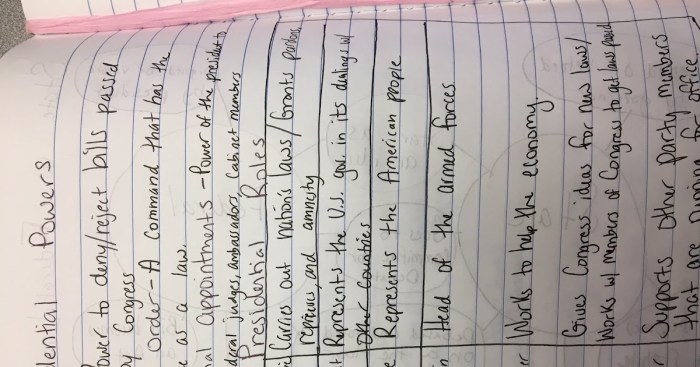 dential Powers
Power to deny/reject bills passed
by Congress
Order - A command that has the
as a law.
al appointments - Power of the president to
deral judges, ambassadors, Cabinet members
Presidential Roles
Carries out nation's laws/Grants pardons
reprieves, and amnesty
Represents the U.S. gov. in its dealings w/
other countries
Represents the American people
Head of the armed forces
Works to help the economy
Gives Congress ideas for new laws/
Works w/ members of Congress to get laws passed
Supports other party members
that are running for office